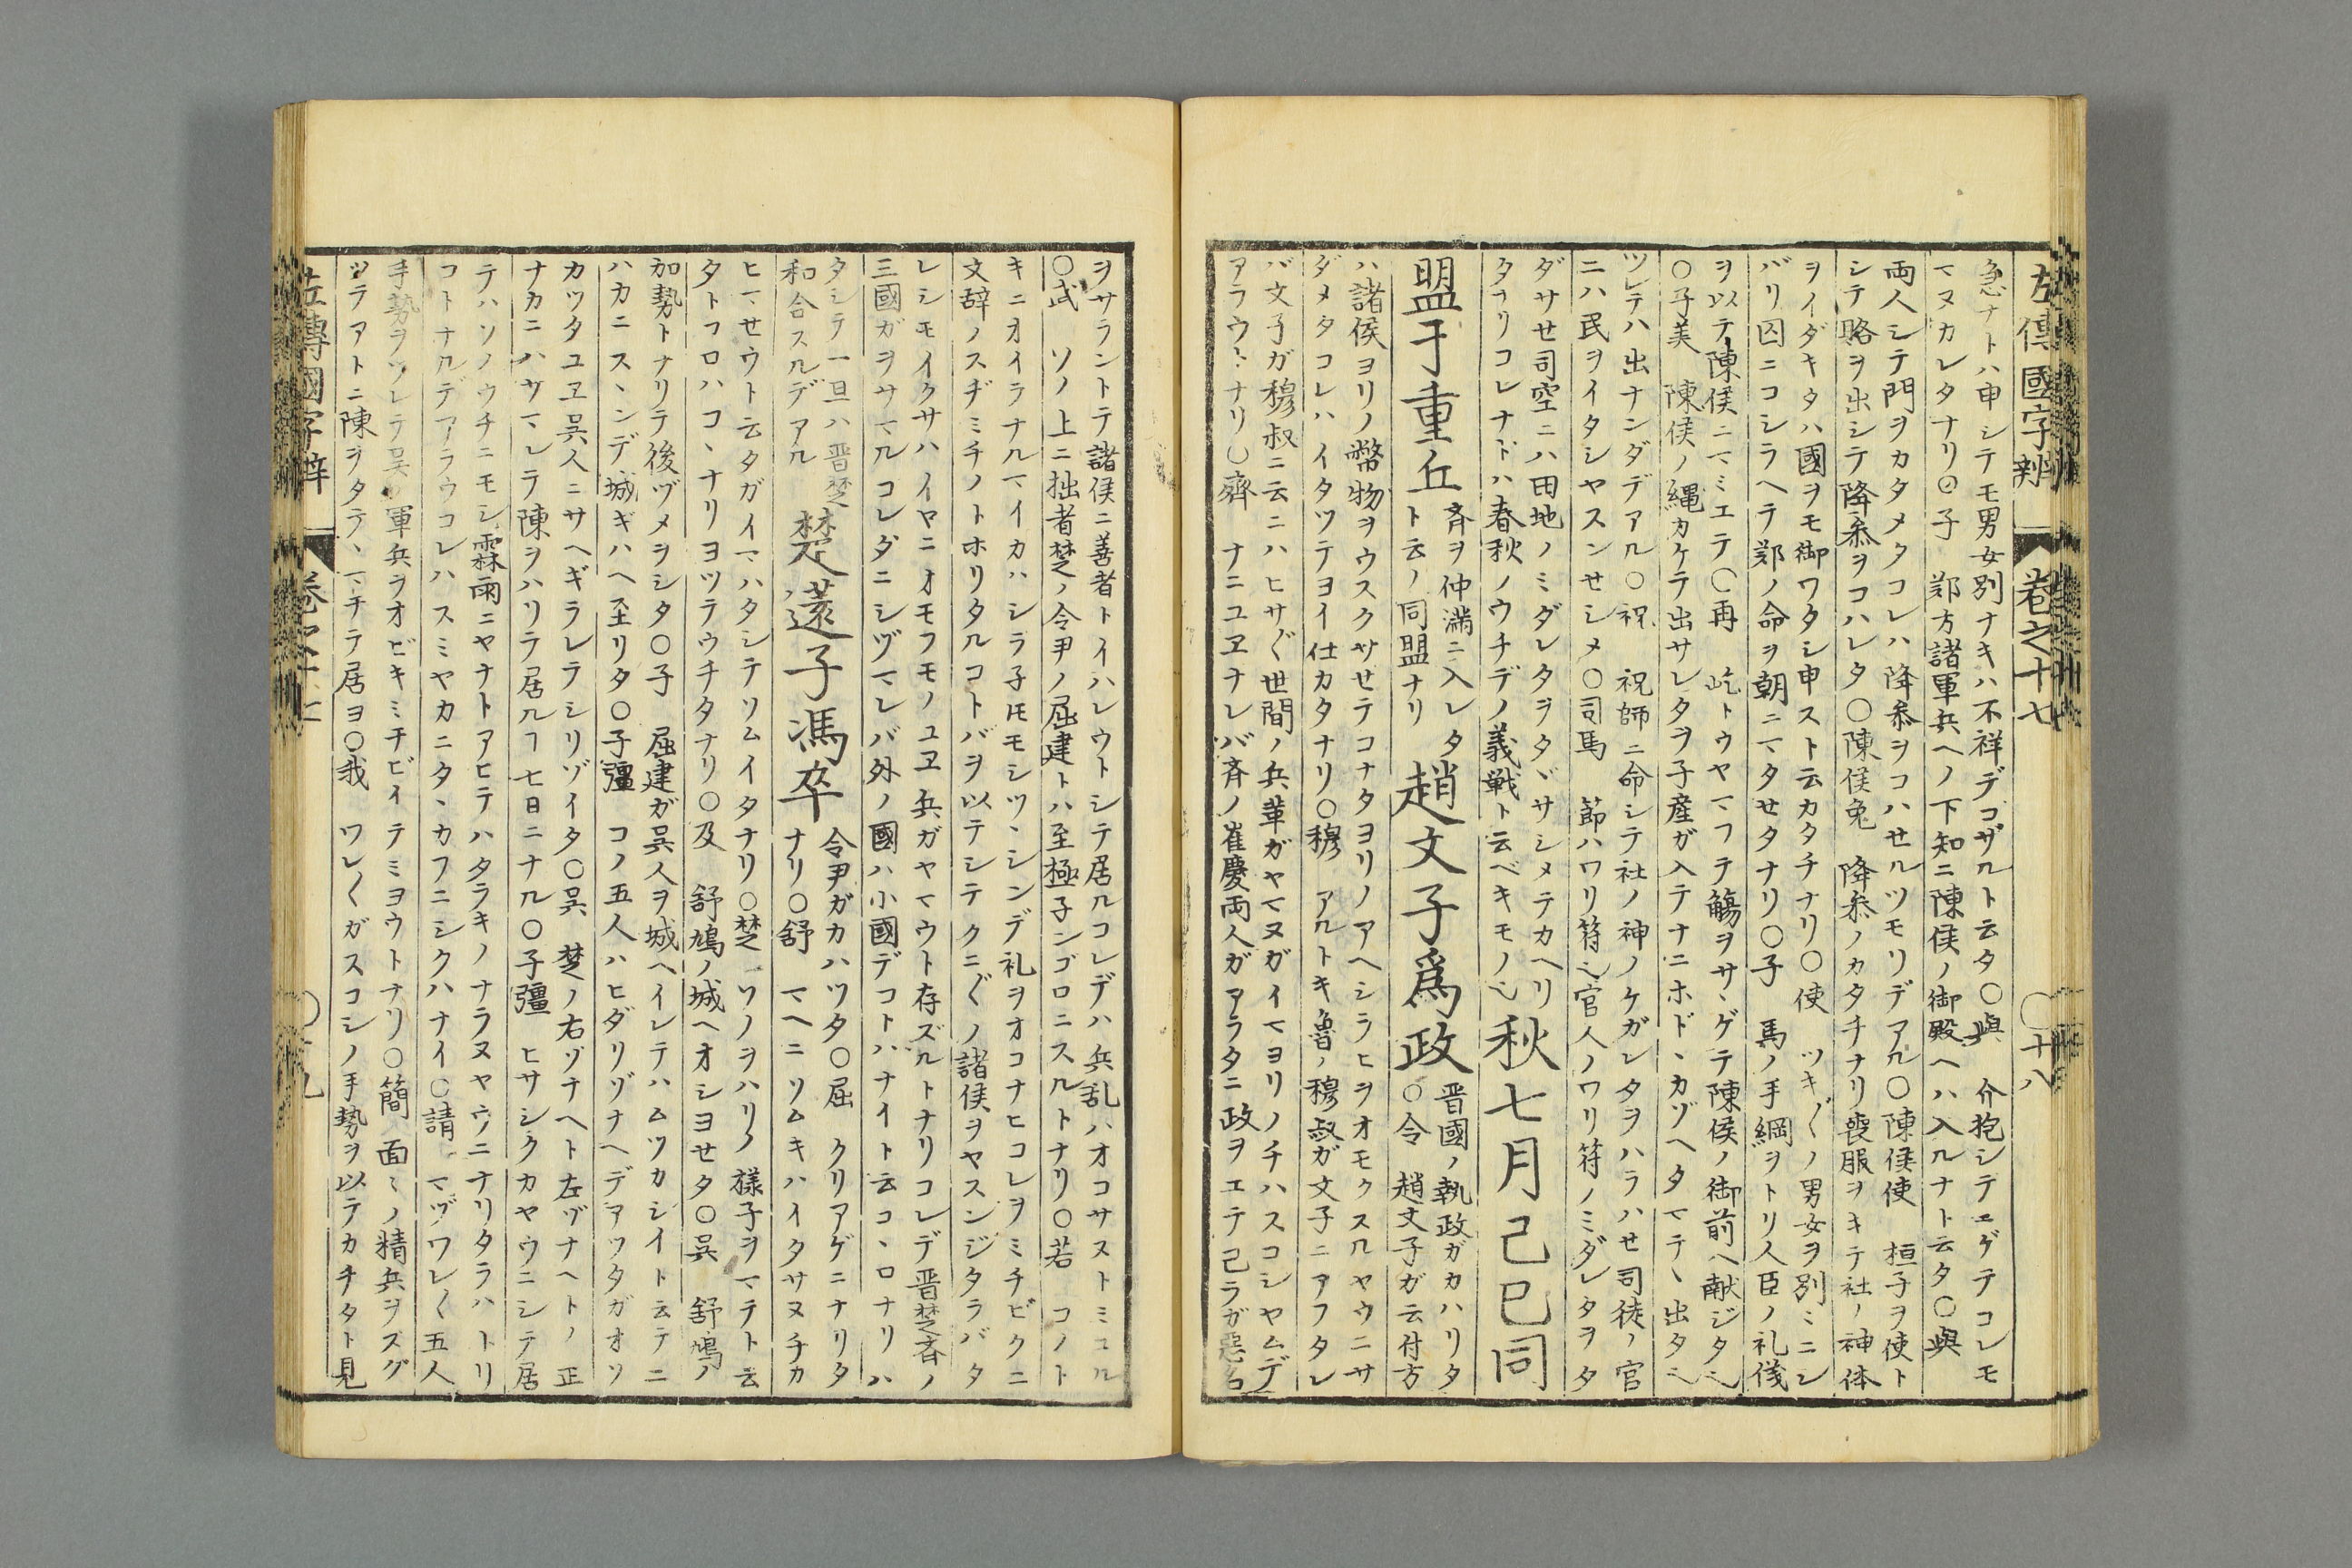 左傳國字辨 巻之十七 〇十八
急ナトハ申シテモ男女別ナキハ不祥デコザルト云タ〇與 介抱シテニゲテコレモ
マヌカレタナリ〇子 鄭方諸軍兵ヘノ下知ニ陳侯ノ御殿ヘハ入ルナト云タ〇與
両人シテ門ヲカタメタコレハ降参ヲコハセルツモリデアル〇陳侯使 桓子ヲ使ト
シテ賂ヲ出シテ降参ヲコハレタ〇陳侯免 降参ノカタチナリ喪服ヲキテ社ノ神体
ヲイダキタハ國ヲモ御ワタシ申スト云カタチナリ〇使 ツキ〲ノ男女ヲ別ミニシ
バリ囚ニコシラヘテ鄭ノ命ヲ朝ニマタセタナリ〇子 馬ノ手綱ヲトリ人臣ノ礼儀
ヲ以テ陳侯ニマミエテ〇再 屹トウヤマフテ觴ヲサヽゲテ陳侯ノ御前ヘ献ジタ也
〇子美 陳侯ノ縄カケテ出サレタヲ子産ガ入テナニホドヽカゾヘタマデヽ出タ也
ツレテハ出ナンダデアル〇祝 祝師ニ命シテ社ノ神ノケガレタヲハラハせ司徒ノ官
ニハ民ヲイタシヤスンせシメ〇司馬 節ハワリ符也官人ノワリ符ノミダレタヲタ
ダサせ司空ニハ田地ノミダレタヲタヾサシメテカヘリ
タナリコレナドハ春秋ノウチデノ義戦ト云ベキモノ也 秋七月己巳同
盟于重丘 斉ヲ仲満ニ入レタ
ト云ノ同盟ナリ 趙文子爲政 晋國ノ執政ガカハリタ
〇令 趙文子ガ云付方
ハ諸侯ヨリノ幣物ヲウスクサせテコナタヨリノアヘシラヒヲオモクスルヤウニサ
ダメタコレハイタツテヨイ仕カタナリ〇穆 アルトキ魯ノ穆叔ガ文子ニアフタレ
バ文子ガ穆叔ニ云ニハヒサ〲世間ノ兵革ガヤマヌガイマヨリノチハスコシヤムデ
アラウヽナリ〇齊 ナニユヱナレバ斉ノ崔慶両人ガアラタニ政ヲエテ己ラガ惡名
ヲサラントテ諸侯ニ善者トイハレウトシテ居ルコレデハ兵乱ハオコサストミユル
〇武 ソノ上ニ拙者楚ノ令尹ノ屈建トハ至極子ンゴロニスルトナリ〇若 コノト
キニオイラナルマイカハシラ子𪜈モシツヽシンデ礼ヲオコナヒコレヲミチビクニ
文辞ノスヂミチノトホリタルコトバヲ以テシテクニ〲ノ諸侯ヲヤスンジタラバタ
レシモイクサハイヤニオモフモノユヱ兵ガヤマウト存ズルトナリコレデ晋楚斉ノ
三國ガヲサマルコレダニシヅマレバ外ノ國ハ小國デコトハナイト云コヽロナリハ
タシテ一旦ハ晋楚
和合スルデアル 楚薳子馮卒 令尹ガカハツタ〇屈 クリアゲニナリタ
ナリ〇舒 マヘニソムキハイタサヌチカ
ヒマせウト云タガイマハタシテソムイタナリ〇楚 ソノヲハリノ様子ヲマテト云
タトコロハコヽナリヨツテウチタナリ〇及 舒鳩ノ城ヘオシヨせタ〇呉 舒鳩ノ
加勢トナリテ後ヅメヲシタ〇子 屈建ガ呉人ヲ城ヘイレテハムツカシイト云テニ
ハカニスヽンデ城ギハヘ至リタ〇子彊 コノ五人ハヒダリゾナヘデアツタガオソ
カツタユヱ呉人ニサヘギラレテシリゾイタ〇呉 楚ノ右ゾナヘト左ヅナヘトノ正
ナカニハサマレテ陳ヲハリテ居ルヿ七日ニナル〇子彊 ヒサシクカヤウニシテ居
テハソノウチニモシ霖雨ニヤナトアヒテハタラキノナラヌヤウニナリタラハトリ
コトナルデアラウコレハスミヤカニタヽカフニシクハナイ〇請 マヅワレ〱五人
手勢ヲツレテ呉ノ軍兵ヲオビキミチビイテミヨウトナリ〇簡 面々ノ精兵ヲスグ
ツテアトニ陳ヲタテヽマチテ居ヨ〇我 ワレ〱ガスコシノ手勢ヲ以テカチタト見
左傳國字辨 巻之十七 〇十九